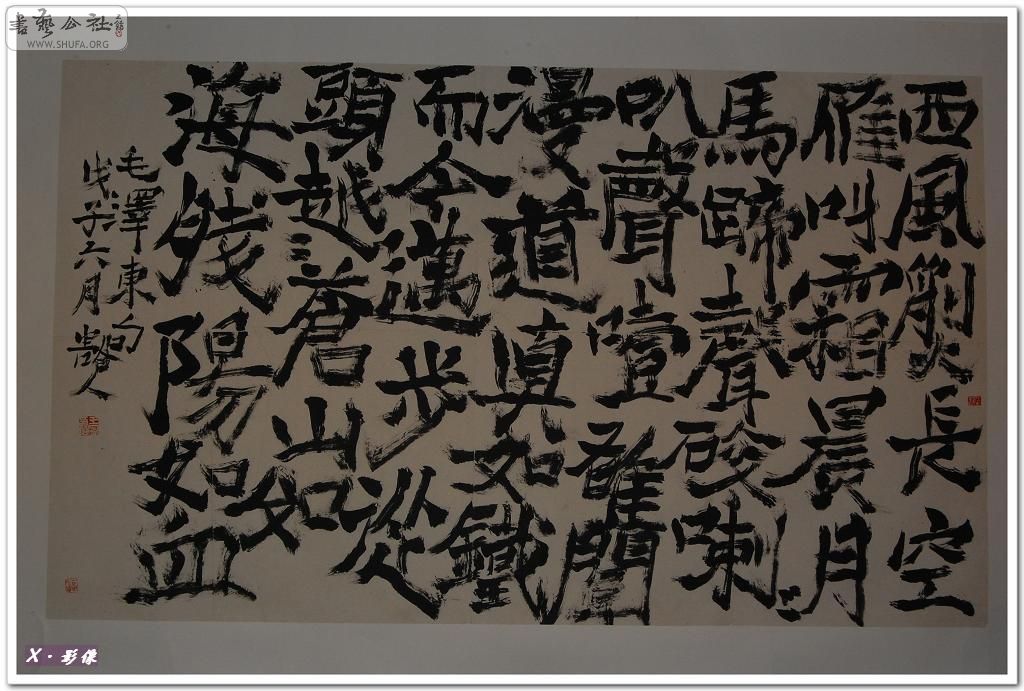 書藝公社
WWW.SHUFA.ORG
西風烈長空
雁叫霜晨月〻
馬蹄聲碎喇
叭聲雄關
漫道真如鐵
而今邁步從
頭越〻蒼山如
海殘陽如血
毛澤東句
戊子六月人
X·影像